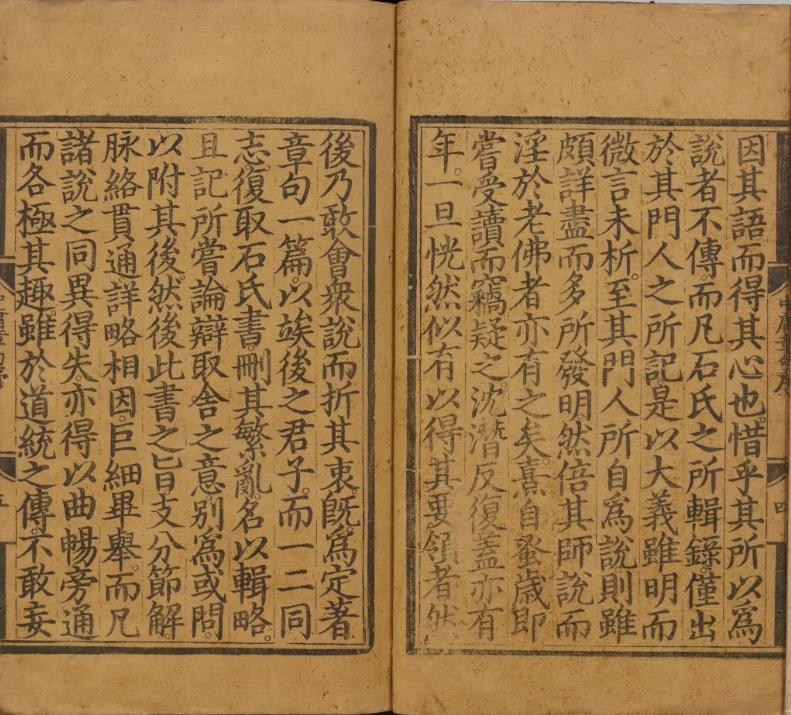 因其語而得其心也。惜乎其所以爲
說者不傳而凡石氏之所輯錄。僅出
於其門人之所記。是以大義雖明而
微言未析。至其門人所自爲說則雖
頗詳盡而多所發明然倍其師說而
淫於老佛者亦有之矣。熹自蚤歲即
嘗受讀而竊疑之。沈潛反復蓋亦有
年。一旦恍然似有以得其要領者然
後乃敢會衆說而折其衷。旣爲定著
章句一篇。以竢後之君子。而一二同
志。復取石氏書刪其繁亂。名以輯略。
且記所嘗論辯取舍之意別爲或問。
以附其後。然後此書之旨支分節解
脉絡貫通詳略相因。巨細畢舉。而凡
諸說之同異得失。亦得以曲暢旁通
而各極其趣。雖於道統之傳。不敢妄